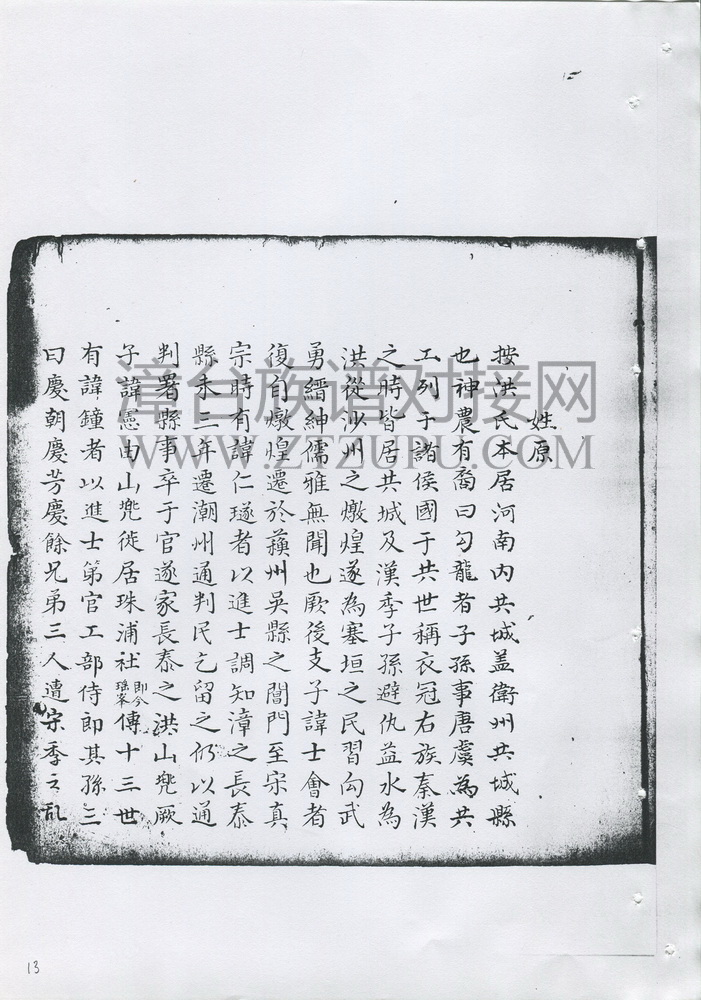 姓原
按洪氏本居河南内共城盖衛州共城縣
也神農有裔曰勾龍者子孫事唐虞為共
工列于諸侯國于共世稱衣冠右族秦漢
之時皆居共城及漢季子孫避仇益水為
洪從沙州之燉煌遂為塞垣之民習向武
勇縉紳儒雅無聞也厥後支子諱士會者
復自燉煌遷於蘓州吳縣之閶門至宋真
宗時有諱仁璲者以進士調知漳之長泰
縣未二年遷潮州通判民乞留之仍以通
判署縣事卒于官遂家長泰之洪山兜厥
子諱憲由山兜徙居珠浦社即今瑤峯傳十三世
有諱鐘者以進士第官工部侍郎其孫三
曰慶朝慶芳慶餘兄弟三人遭宋季之乱
漳台族谱对接网
WWW.ZTZUPU.COM
13